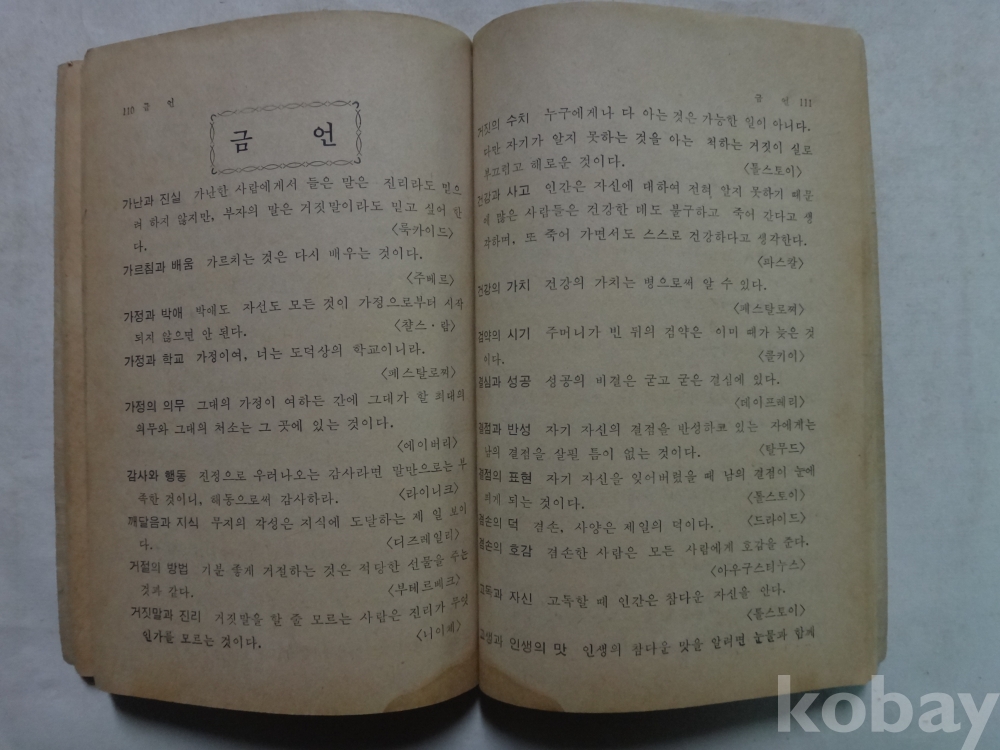 110 금 언
금 언
가난과 진실 가난한 사람에게서 들은 말은 진리라도 믿으
려 하지 않지만, 부자의 말은 거짓말이라도 믿고 싶어 한
다. 〈룩카이드〉
가르침과 배움 가르치는 것은 다시 배우는 것이다.
〈주베르〉
가정과 박애 박애도 자선도 모든 것이 가정으로부터 시작
되지 않으면 안 된다. 〈찰스·람〉
가정과 학교 가정이여, 너는 도덕상의 학교이니라.
〈페스탈로찌〉
가정의 의무 그대의 가정이 여하든 간에 그대가 할 최대의
의무와 그대의 처소는 그 곳에 있는 것이다.
〈에이버리〉
감사와 행동 진정으로 우러나오는 감사라면 말만으로는 부
족한 것이니, 해동으로써 감사하라. 〈라이니크〉
깨달음과 지식 무지의 각성은 지식에 도달하는 제 일 보이
다. 〈디즈레일리〉
거절의 방법 기분 좋게 거절하는 것은 적당한 선물을 주는
것과 같다. 〈부테르베크〉
거짓말과 진리 거짓말을 할 줄 모르는 사람은 진리가 무엇
인가를 모르는 것이다. 〈니이체〉
금 언 111
거짓의 수치 누구에게나 다 아는 것은 가능한 일이 아니다.
다만 자기가 알지 못하는 것을 아는 척하는 거짓이 실로
부끄럽고 해로운 것이다. 〈톨스토이〉
건강과 사고 인간은 자신에 대하여 전혀 알지 못하기 때문
에 많은 사람들은 건강한 데도 불구하고 죽어 간다고 생
각하며, 또 죽어 가면서도 스스로 건강하다고 생각한다.
〈파스칼〉
건강의 가치 건강의 가치는 병으로써 알 수 있다.
〈페스탈로찌〉
검약의 시기 주머니가 빈 뒤의 검약은 이미 때가 늦은 것
이다. 〈클키이〉
결심과 성공 성공의 비결은 굳고 굳은 결심에 있다.
〈데이프헤리〉
결점과 반성 자기 자신의 결점을 반성하고 있는 자에게는
남의 결점을 살필 틈이 없는 것이다. 〈탈무드〉
결점의 표현 자기 자신을 잊어버렸을 때 남의 결점이 눈에
띄게 되는 것이다. 〈톨스토이〉
겸손의 덕 겸손, 사양은 제일의 덕이다. 〈드라이드〉
겸손의 호감 겸손한 사람은 모든 사람에게 호감을 준다.
〈아우구스티누스〉
고독과 자신 고독할 때 인간은 참다운 자신을 안다.
〈톨스토이〉
고생과 인생의 맛 인생의 참다운 맛을 알려면 눈물과 함께
kobay